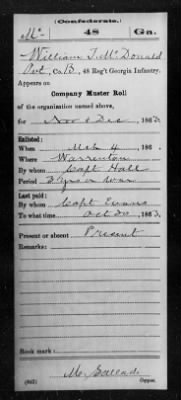 (Confederate.)
Mc 48 Ga.
William T. McDonald
Pvt, Co. B, 48 Reg't Georgia Infantry.
Appears on
Company Muster Roll
of the organization named above,
for Nov & Dec, 1863.
Enlisted:
When Mch 4, 186 .
Where Warrenton
By whom Capt Hall
Period 3 yrs or war
Last paid:
By whom Capt Evans
To what time Oct 30, 1863.
Present or absent Present
Remarks:
Book mark:
(642) Copyist.